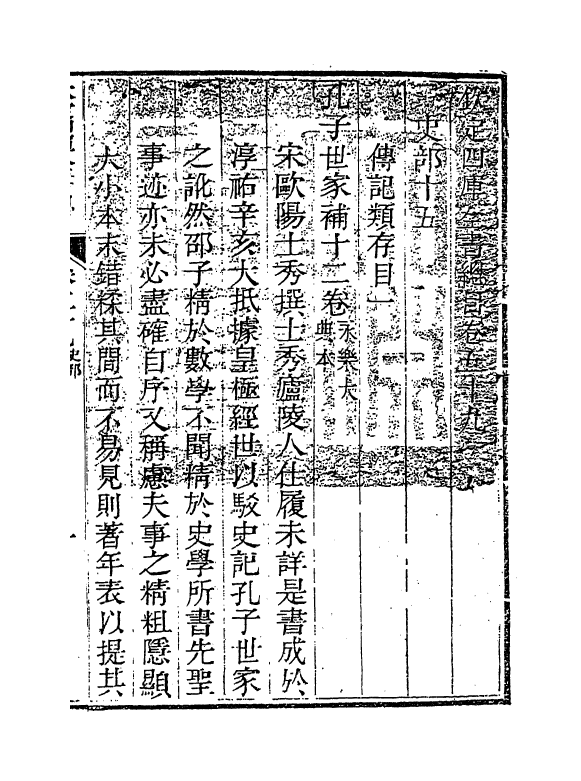 欽定四庫全書總目卷五十九
史部十五
傳記類存目一
孔子世家補十二卷永樂大典本
宋歐陽士秀撰士秀廬陵人仕履未詳是書成於
淳祐辛亥大抵據皇極經世以駁史記孔子世家
之訛然邵子精於數學不聞精於史學所書先聖
事迹亦未必盡確自序又稱慮夫事之精粗隱顯
大小本末錯糅其間而不易見則著年表以提其